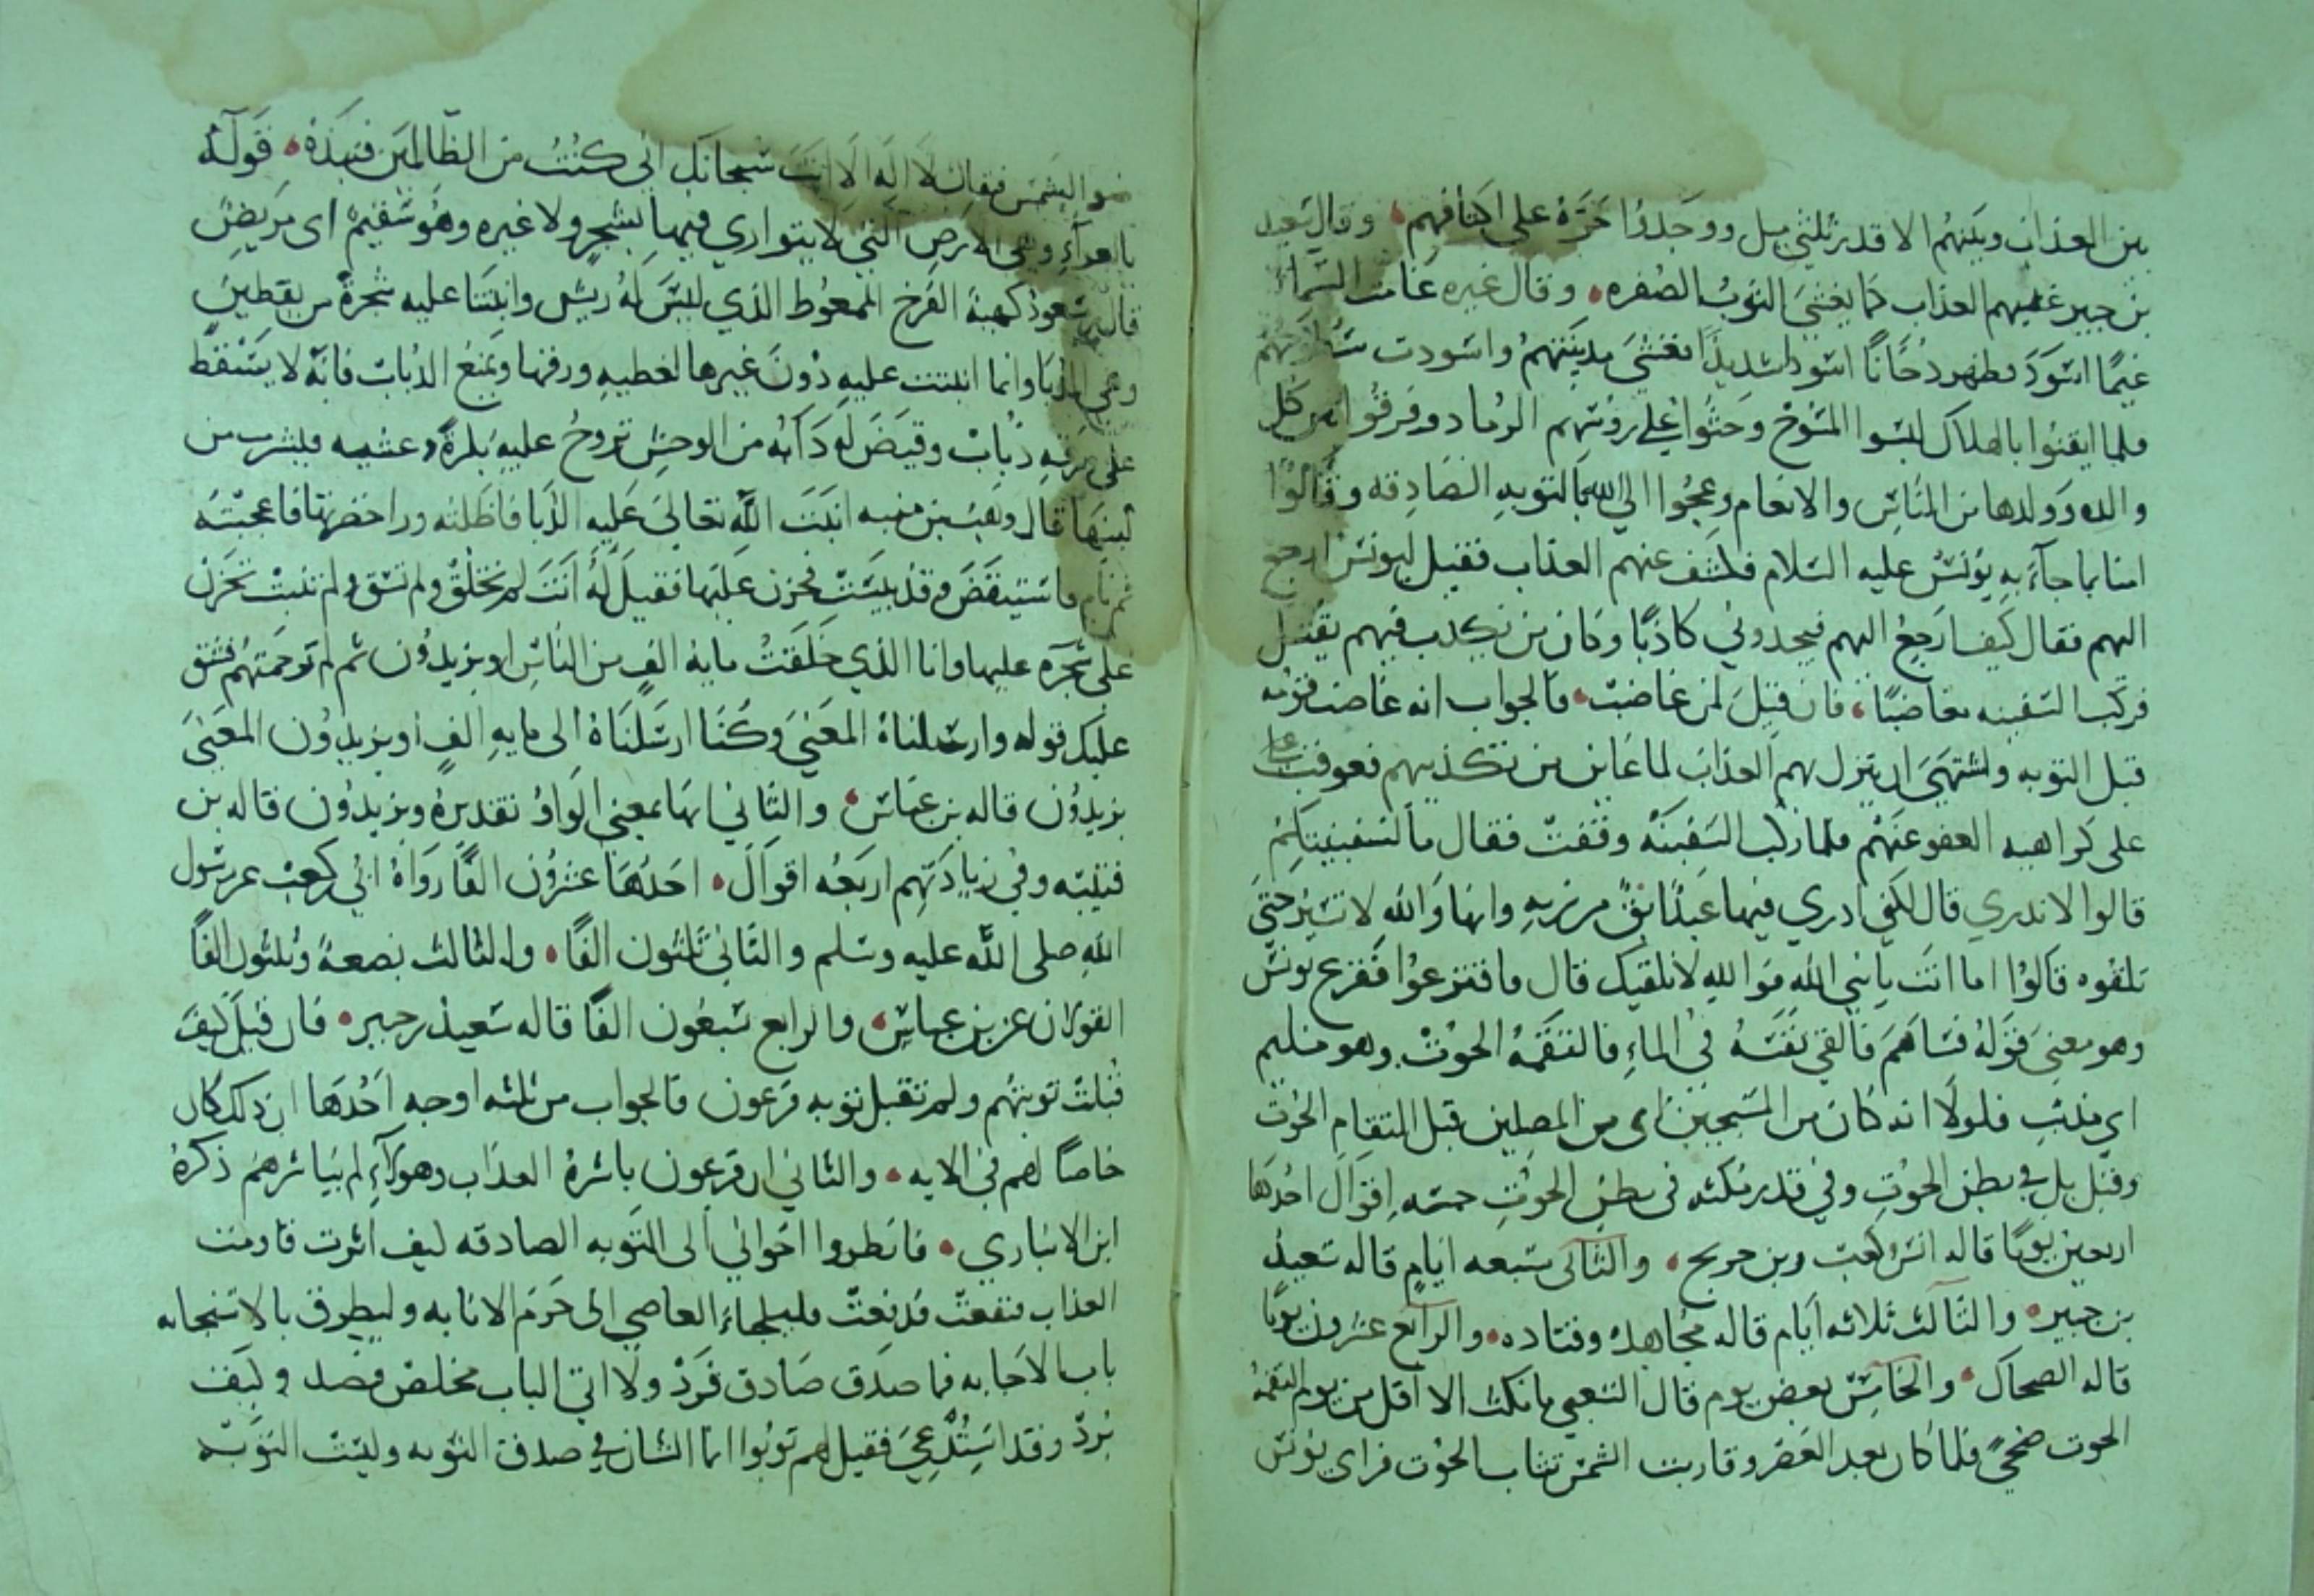 بين العذاب وبينهم الا قدر ثلثي ميل ووجدوا حره على اكتافهم وقال سعيد
بن جبير غشيهم العذاب كما يغشى الثوب الصفره وقال غيره غامت السماء
غيمًا اسود فظهر دخانًا اسود شديدًا فغشي مدينتهم واسودت
فلما ايقنوا بالهلاك لبسوا المسوح وحثوا على رؤسهم الرماد وفرقوا بين كل
والده وولدها من الناس والانعام وعجوا الى الله بالتوبه الصادقه وقالوا
امنا بما جاء به يونس عليه السلام فكشف عنهم العذاب فقيل ليونس ارجع
اليهم فقال كيف ارجع اليهم فيجدوني كاذبًا وكان من يكذب فيهم يقتل
فركب السفينه مغاضبًا فان قيل لمن غاضب فالجواب انه غاضب قومه
قبل التوبه واشتهى ان ينزل بهم العذاب لما عاين من تكذيبهم فعوقب على
على كراهيه العفو عنهم فلما ركب السفينه وقفت فقال ما لسفينتكم
قالوا لا ندري قال لكني ادري فيها عبد ابق من ربه وانها والله لا تسير حتى
تلقوه قالوا اما انت يا نبي الله فوالله لا نلقيك قال فاقترعوا فقرع يونس
وهو معنى قوله فساهم فالقى نفسه في الماء فالتقمه الحوت وهو مليم
اي مذنب فلولا انه كان من المسبحين اي من المصلين قبل التقام الحوت
وقيل بل في بطن الحوت وفي قدر مكثه في بطن الحوت خمسه اقوال احدها
اربعين يومًا قاله انس وكعب وبن جريج والثاني سبعه ايام قاله سعيد
بن جبير والثالث ثلاثه ايام قاله مجاهد وقتاده والرابع عشرون يومًا
قاله الضحاك والخامس بعض يوم قال الشعبي ما مكث الا اقل من يوم التقمه
الحوت ضحىً فلما كان بعد العصر وقاربت الشمس تثاب الحوت فراى يونس
ضو الشمس فقال لا اله الا انت سبحانك اني كنت من الظالمين فنبذه قوله
بالعراء وهي الارض التي لا يتواري فيها بشجر ولا غيره وهو سقيم اى مريض
قال بن مسعود كهيئة الفرخ الممعوط الذي ليس له ريش وانبتنا عليه شجرة من يقطين
وهي الدبا وانما انبتت عليه دون غيرها لتغطيه ورقها وتمنع الذباب فانه لا يسقط
على ورقه ذباب وقيض له دابه من الوحش تروح عليه بكرةً وعشيه فيشرب من
لبنها قال وهب بن منبه انبت الله تعالى عليه الدبا فاظلته وراى خضرتها فاعجبته
ثم نام فاستيقض وقد يبست فحزن عليها فقيل له انت لم تخلق ولم تسق ولم تنبت تحزن
على شجره عليها وانا الذي خلقت مايه الف من الناس او يزيدون ثم لم ترحمتهم فشق
عليك قوله وارسلناه المعنى وكنا ارسلناه الى مايه الف او يزيدون المعنى
يزيدون قاله بن عباس والثاني انها بمعنى الواو تقديره ويزيدون قاله بن
قتيبه وفي زيادتهم اربعه اقوال احدها عشرون الفًا رواه ابي بن كعب عن رسول
الله صلى الله عليه وسلم والثاني ثلثون الفًا والثالث بضعة وثلثون الفًا
القولان عن بن عباس والرابع سبعون الفًا قاله سعيد بن جبير فان قيل كيف
قبلت توبتهم ولم تقبل توبه فرعون فالجواب من ثلثه اوجه احدها ان ذلك كان
خاصًا لهم في الايه والثاني ان فرعون باشره العذاب وهولاء لم يباشرهم ذكره
ابن الانباري فانظروا اخواني الى التوبه الصادقه كيف اثرت قاومت
العذاب فنفعت فدفعت فليلجاء العاصي الى حرم الانابه وليطرق بالاسحار
باب الاجابه فما صدق صادق فرد ولا اتي الباب مخلص فصد وكيف
يرد وقد استدعي فقيل لهم توبوا انما الشان في صدق التوبه وليست التوبه